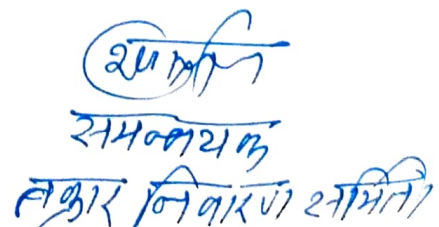 समन्वयक
तक्रार निवारण समिती